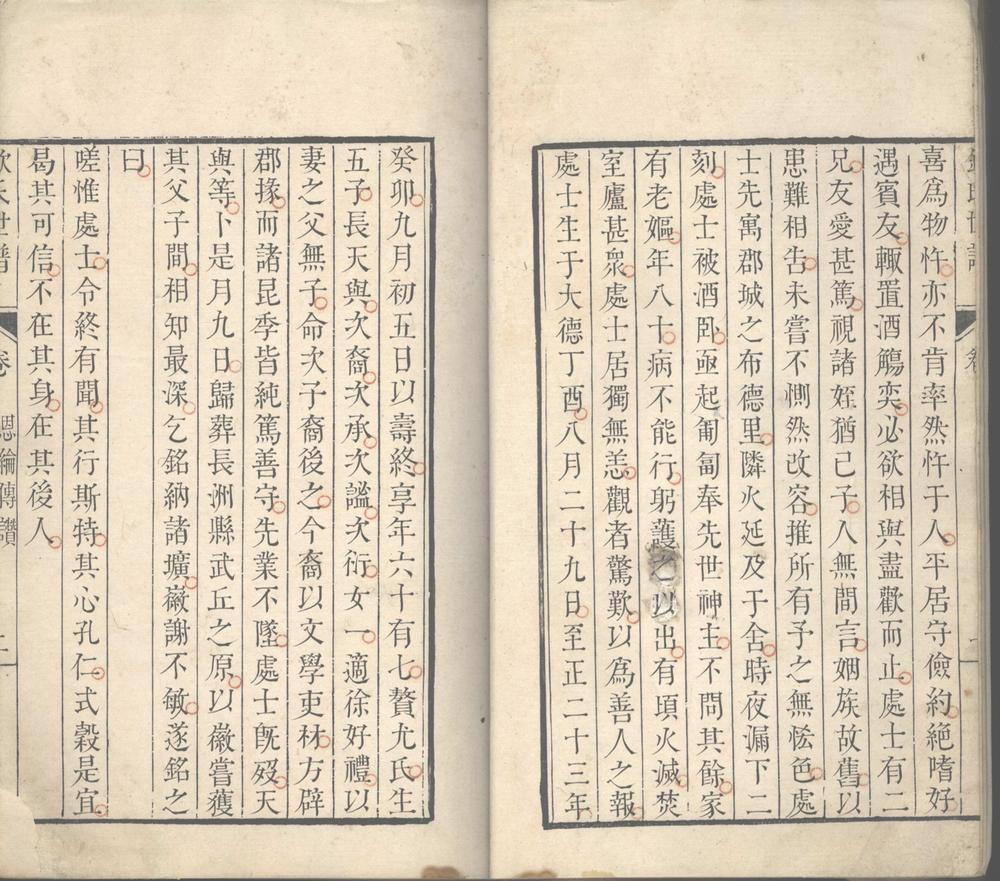 喜為物忤亦不肯率然忤于人平居守儉約絶嗜好
遇賓友輙置酒觴奕必欲相與盡歡而止處士有二
兄友愛甚篤視諸姪猶己子人無間言姻族故舊以
患難相告未嘗不惻然改容推所有予之無恡色處
士先寓郡城之布德里隣火延及于舍時夜漏下二
刻處士被酒卧亟起匍匐奉先世神主不問其餘家
有老嫗年八十病不能行躬護之以出有頃火滅焚
室廬甚衆處士居獨無恙觀者驚歎以為善人之報
處士生于大德丁酉八月二十九日至正二十三年
癸卯九月初五日以壽終享年六十有七贅尤氏生
五子長天與次裔次承次謐次衍女一適徐好禮以
妻之父無子命次子裔後之今裔以文學吏材方辟
郡掾而諸昆季皆純篤善守先業不墜處士旣歿天
與等卜是月九日歸葬長洲縣武丘之原以徽嘗獲
其父子間相知最深乞銘納諸壙薇謝不敏遂銘之
曰
嗟惟處士令終有聞其行斯特其心孔仁式穀是宜
曷其可信不在其身在其後人
氏世譜
卷
恩綸傳讚